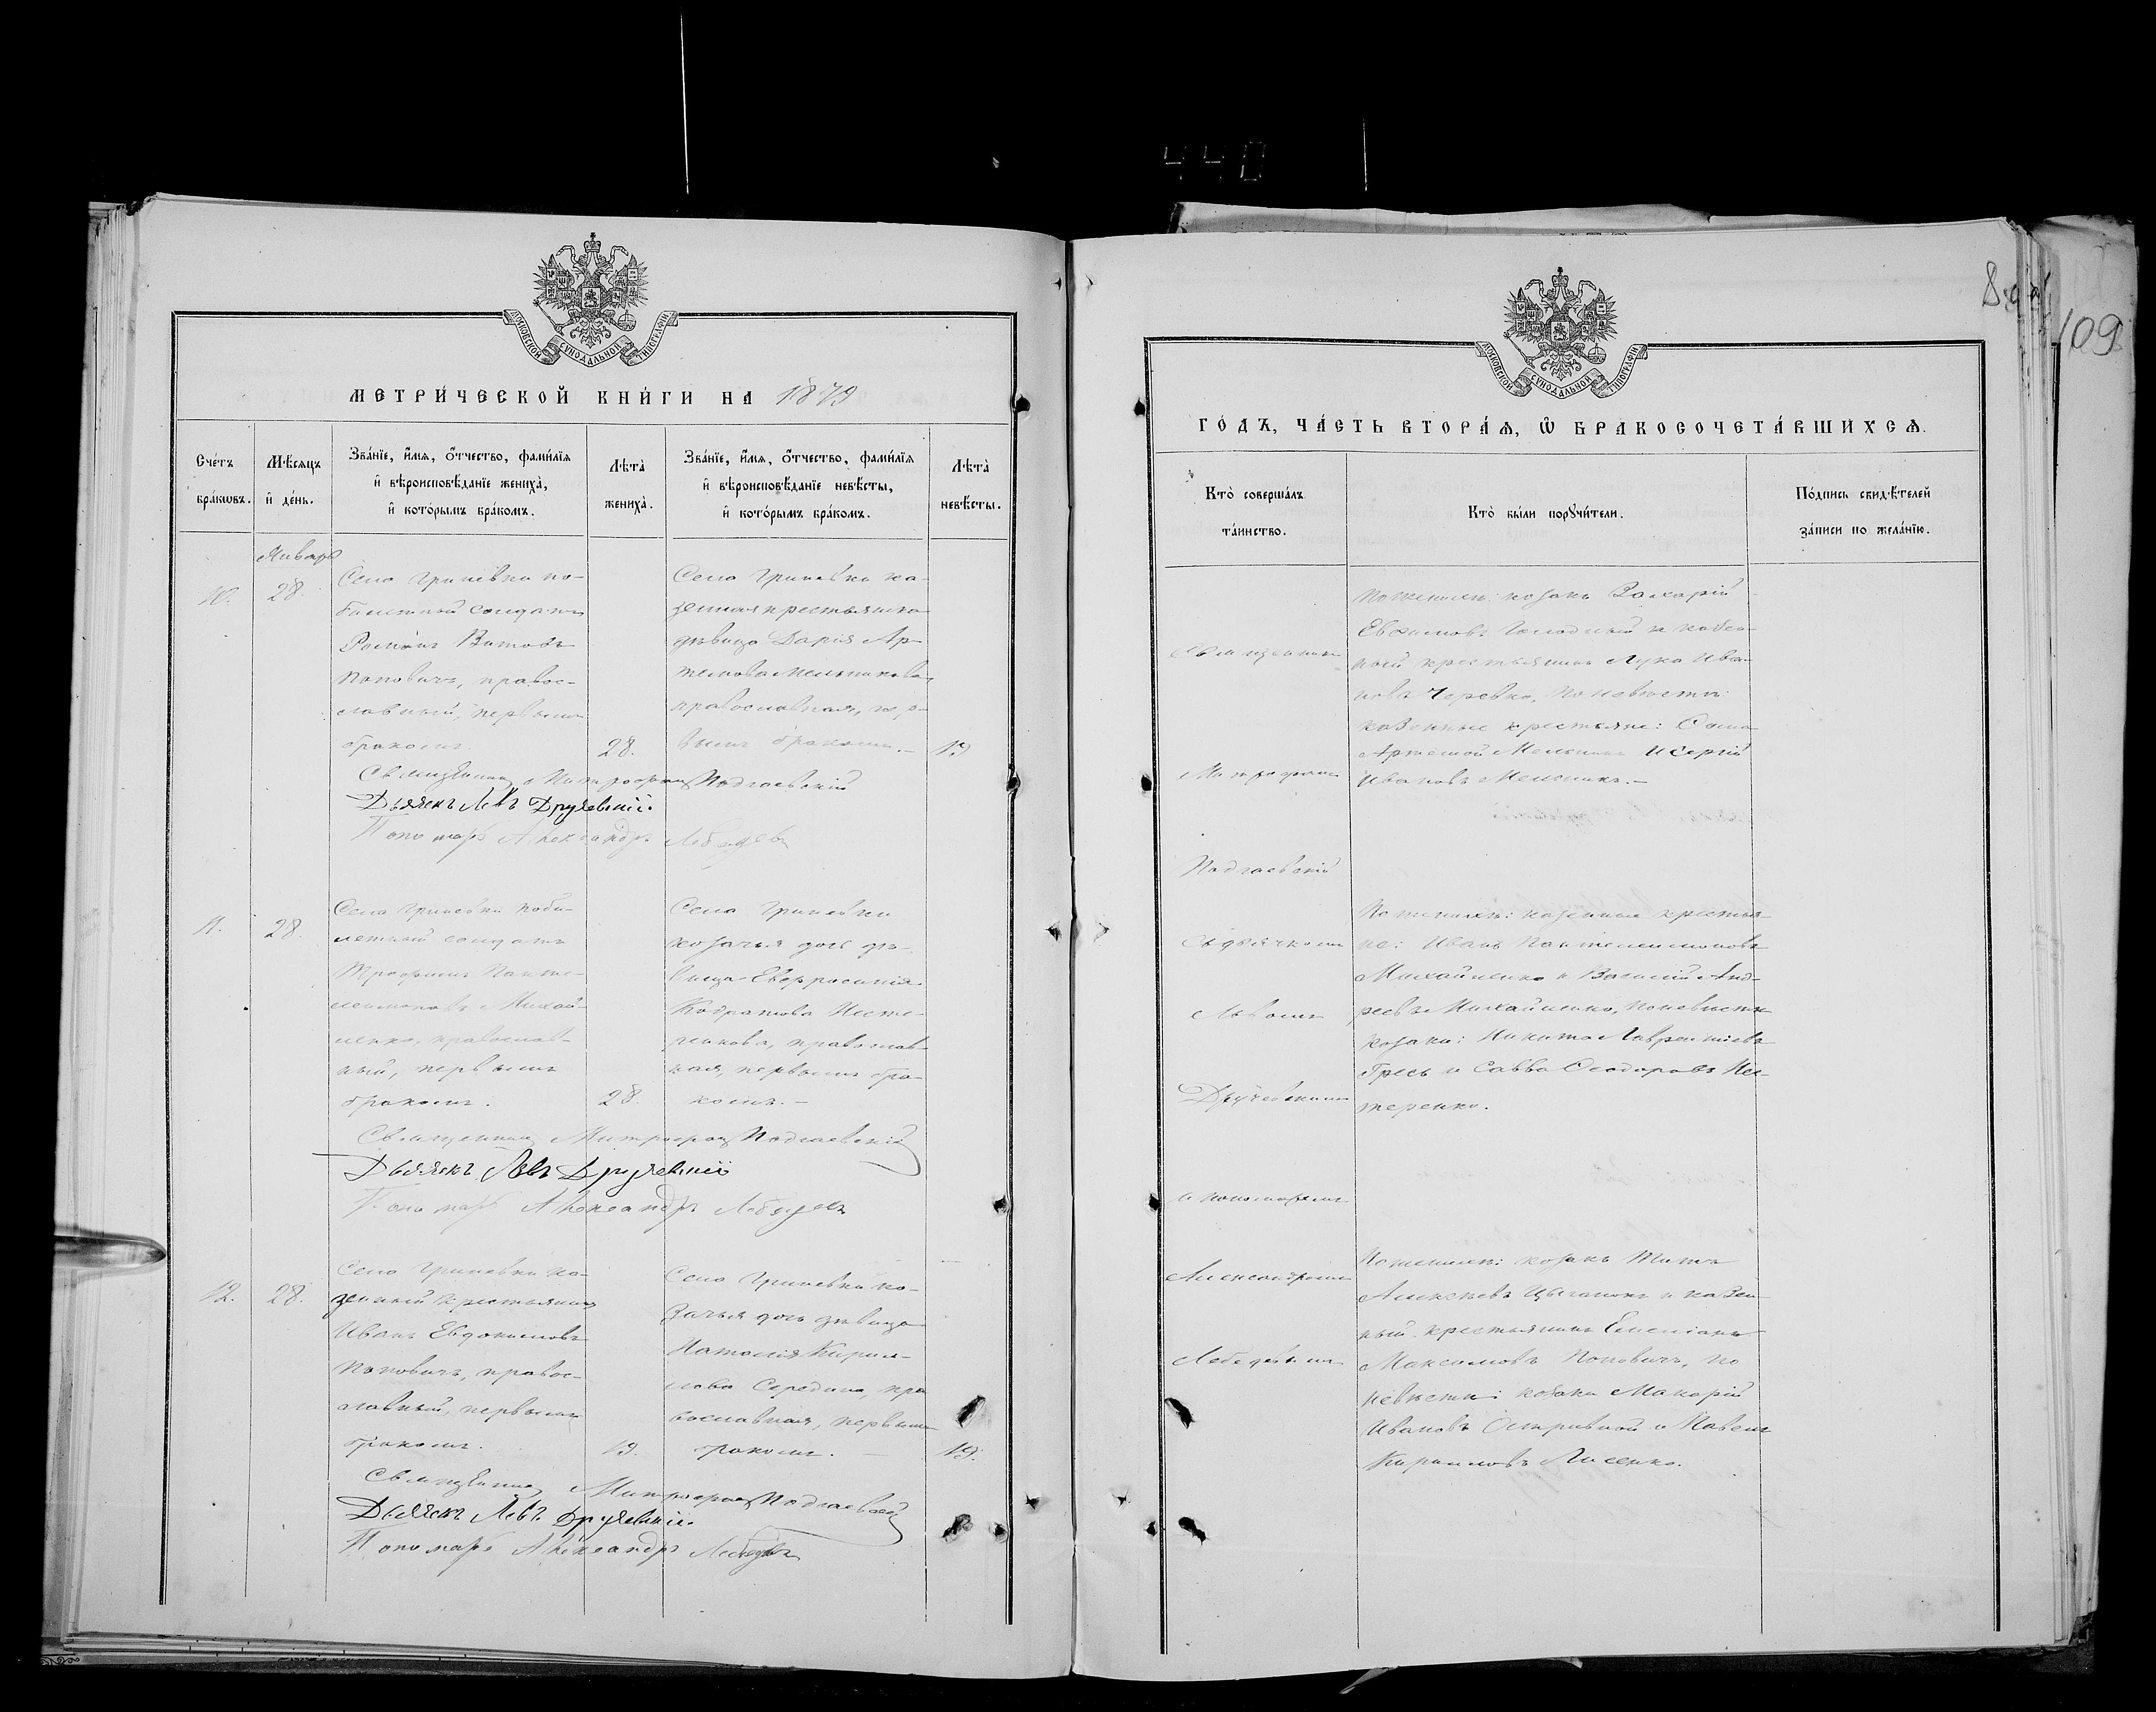 440
109
МОСКОВСКОЙ СѴНОДАЛЬНОЙ ТИПОГРАФІИ
МЕТРИ́ЧЕСКОЙ КНИ́ГИ НА 1879
Сче́тъ бра́кѡвъ.
Мѣ́сяцъ и҆ де́нь.
Зва́нїе, и҆́мя, ѻ҆́тчество, фамилїя
и҆ вѣроисповѣ́данїе жениха̀,
и҆ кото́рымъ бра́комъ.
Лѣ́та жениха̀.
Зва́нїе, и҆́мя, ѻ҆́тчество, фамилїя
и҆ вѣроисповѣ́данїе невѣ́сты,
и҆ кото́рымъ бра́комъ.
Лѣ́та невѣ́сты.
Январь
10.
28.
Села Гриневки по-
билетный солдатъ
Романъ Титовъ
Поповичъ, правос-
лавный, первымъ
бракомъ.
28.
Села Гриневки ка-
зенная крестьянка
дѣвица Дарія Ар-
темова Мельникова
православная, пер-
вымъ бракомъ.—
19
Священникъ Митрофанъ Подгаевскій
Дьячекъ Левъ Дручевскій.
Пономарь Александръ Лебедевъ
11.
28.
Села Гриневки поби-
летный солдатъ
Трофимъ Панте-
леимоновъ Михай-
ленко, православ-
ный, первымъ
бракомъ.
28.
Села Гриневки
козачья дочь дѣ-
вица Евфросинія
Кодратова Несте-
ренкова, православ-
ная, первымъ бра-
комъ.—
Священникъ Митрофанъ Подгаевскій
Дьячекъ Левъ Дручевскій
Пономарь Александръ Лебедевъ
12.
28.
Села Гриневки ка-
зенный крестьянинъ
Иванъ Евдокимовъ
Поповичъ, правос-
лавный, первымъ
бракомъ.
19.
Села Гриневки ко-
зачья дочь дѣвица
Наталія Кирил-
лова Середина, пра
вославная, первымъ
бракомъ.—
19.
Священникъ Митрофанъ Подгаевскій
Дьячекъ Левъ Дручевскій.
Пономарь Александръ Лебедевъ
МОСКОВСКОЙ СѴНОДАЛЬНОЙ ТИПОГРАФІИ
ГО́ДЪ, ЧА́СТЬ ВТОРА́Я, Ѡ҆ БРАКОСОЧЕТА́ВШИХСѦ.
Кто̀ соверша́лъ та́инство.
Кто̀ бы́ли порꙋчи́тели.
По́дпись свидѣ́телей
за́писи по жела́нїю.
Священникъ
Митрофанъ
Подгаевскій
Съ дьячкомъ
Львомъ
Дручевскимъ
и пономаремъ
Александромъ
Лебедевымъ
По женихѣ: козакъ Захарій
Евфимовъ Голодный и казен-
ный крестьянинъ Лука Ива-
новъ Черевко, По невѣстѣ:
казенные крестьяне: Сава
Артемовъ Мельникъ и Сергій
Ивановъ Мельникъ.—
По женихѣ: казенные крестья-
не: Иванъ Пантелеимоновъ
Михайленко и Василій Анд-
реевъ Михайленко, По невѣстѣ
козаки: Никита Лаврентіевъ
Гресь и Савва Феодоровъ Нес-
теренко.
По женихѣ: козакъ Титъ
Алексѣевъ Цыганокъ и казен-
ный крестьянинъ Емеліанъ
Максимовъ Поповичъ, по
невѣстѣ: козаки Макарій
Ивановъ Остривной и Павелъ
Кирилловъ Лисенко.